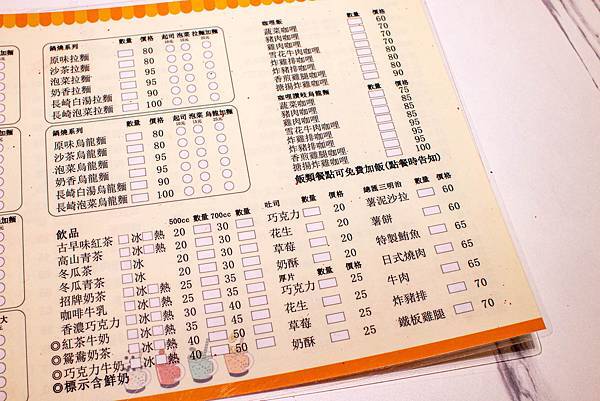 鍋燒系列 數量 價格 起司 泡菜 拉麵加麵
原味拉麵 80
沙茶拉麵 80
泡菜拉麵 95
奶香拉麵 95
長崎白湯拉麵 95
長崎泡菜拉麵 100
鍋燒系列 數量 價格 起司 泡菜 烏龍加麵
原味烏龍麵 80
沙茶烏龍麵 80
泡菜烏龍麵 95
奶香烏龍麵 90
長崎白湯烏龍麵
長崎泡菜烏龍麵 100
咖哩飯 數量 價格
蔬菜咖哩 60
豬肉咖哩 70
雞肉咖哩 70
雪花牛肉咖哩
炸雞排咖哩 80
炸豬排咖哩 80
香煎雞腿咖哩 80
搪揚炸雞咖哩 90
咖哩讚岐烏龍麵 數量 價格
蔬菜咖哩 75
豬肉咖哩 85
雞肉咖哩 85
雪花牛肉咖哩
炸雞排咖哩 95
炸豬排咖哩 95
香煎雞腿咖哩
搪揚炸雞咖哩 100
飯類餐點可免費加飯(點餐時告知)
飲品 500cc 數量 700cc 數量
古早味紅茶 冰 熱 20 30
高山青茶 冰 熱 20 30
冬瓜茶 冰 20 30
冬瓜青茶 冰 20 30
招牌奶茶 冰 熱 25 35
咖啡牛乳 冰 熱 25 35
香濃巧克力 冰 熱 25 35
◎紅茶牛奶 冰 熱 35 45
◎鴛鴦奶茶 冰 熱 40 50
◎巧克力牛奶 冰 熱 40 50
◎標示含鮮奶
吐司 數量 價格
巧克力 20
花生 20
草莓 20
奶酥 20
厚片 數量 價格
巧克力 25
花生 25
草莓 25
奶酥 25
總匯三明治 數量 價格
薯泥沙拉 60
薯餅 60
特製鮪魚 65
日式燒肉 65
牛肉 65
炸豬排 70
鐵板雞腿 70